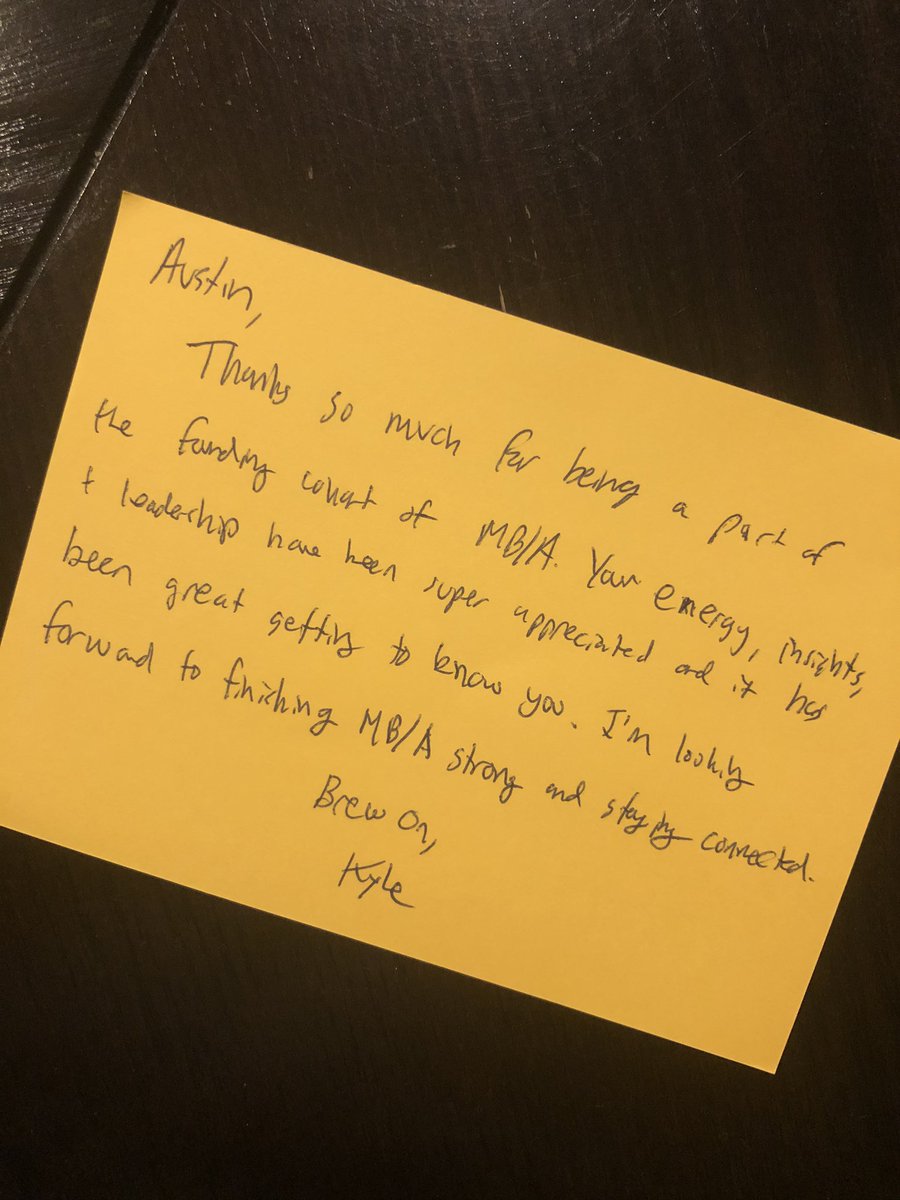 Austin,
Thanks so much for being a part of
the founding cohort of MB/A. Your energy, insights,
+ leadership have been super appreciated and it has
been great getting to know you. I'm looking
forward to finishing MB/A strong and staying connected.
Brew On,
Kyle